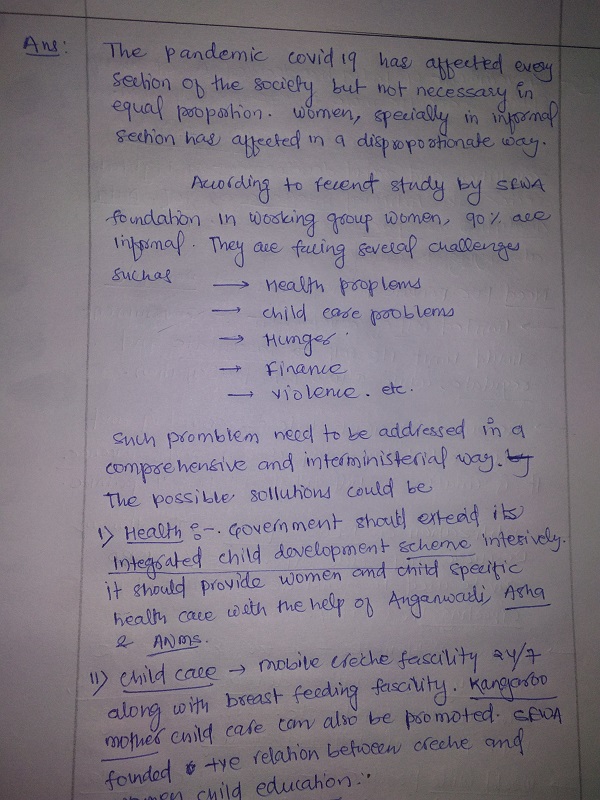 Ans:
The pandemic covid 19 has affected every
section of the society but not necessary in
equal proportion. women, specially in informal
section has affected in a disproportionate way.
According to recent study by SEWA
foundation in working group women, 90% are
informal. They are facing several challenges
suchas → Health proplems
→ child care problems
→ Hunger
→ Finance
→ violence. etc.
such promblem need to be addressed in a
comprehensive and interministerial way. by
The possible sollutions could be
1) Health :-. Government should extend its
Integrated child development scheme intesively.
it should provide women and child specific
health care with the help of Anganwadi, Asha
& ANMs.
11) child care → mobile creche fascility 24/7
along with breast feeding fascility. Kangaroo
mother child care can also be promoted. SEWA
founded +ve relation between creche and
child education.